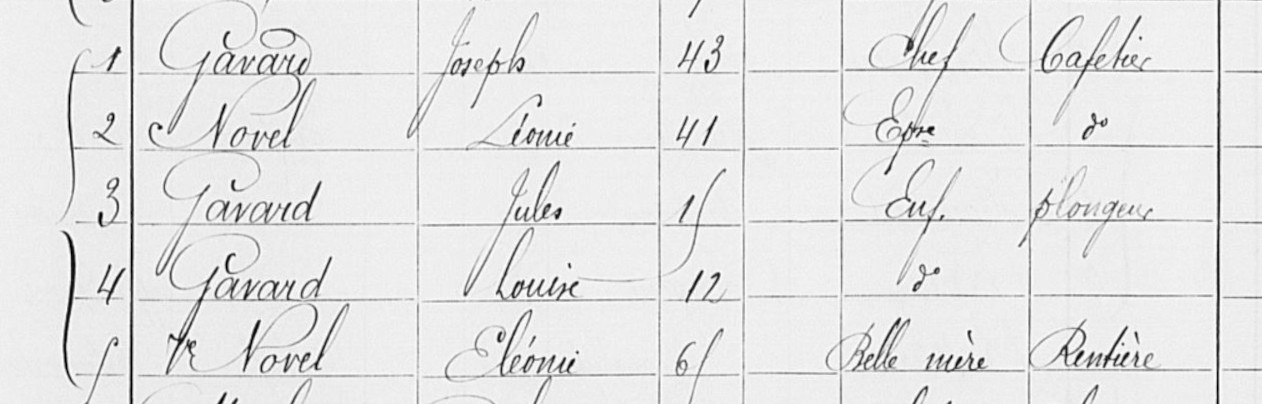 1 Gavard Joseph 43 Chef Cafetier
2 Novel Léonie 41 Epse do
3 Gavard Jules 15 Enf. plongeur
4 Gavard Louise 12 do
5 Ve Novel Eléonie 65 Belle mère Rentière